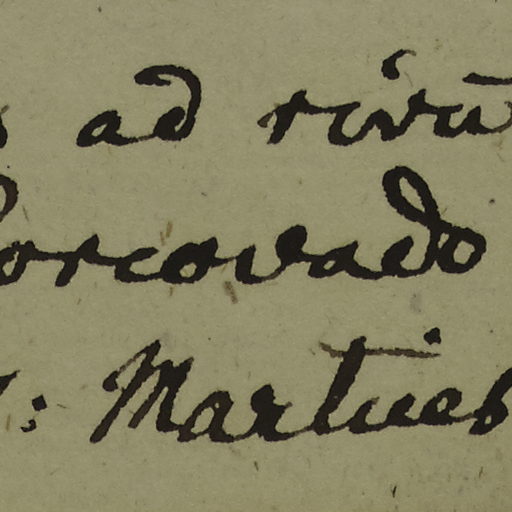 ad rivū
Corcovado
: Martius